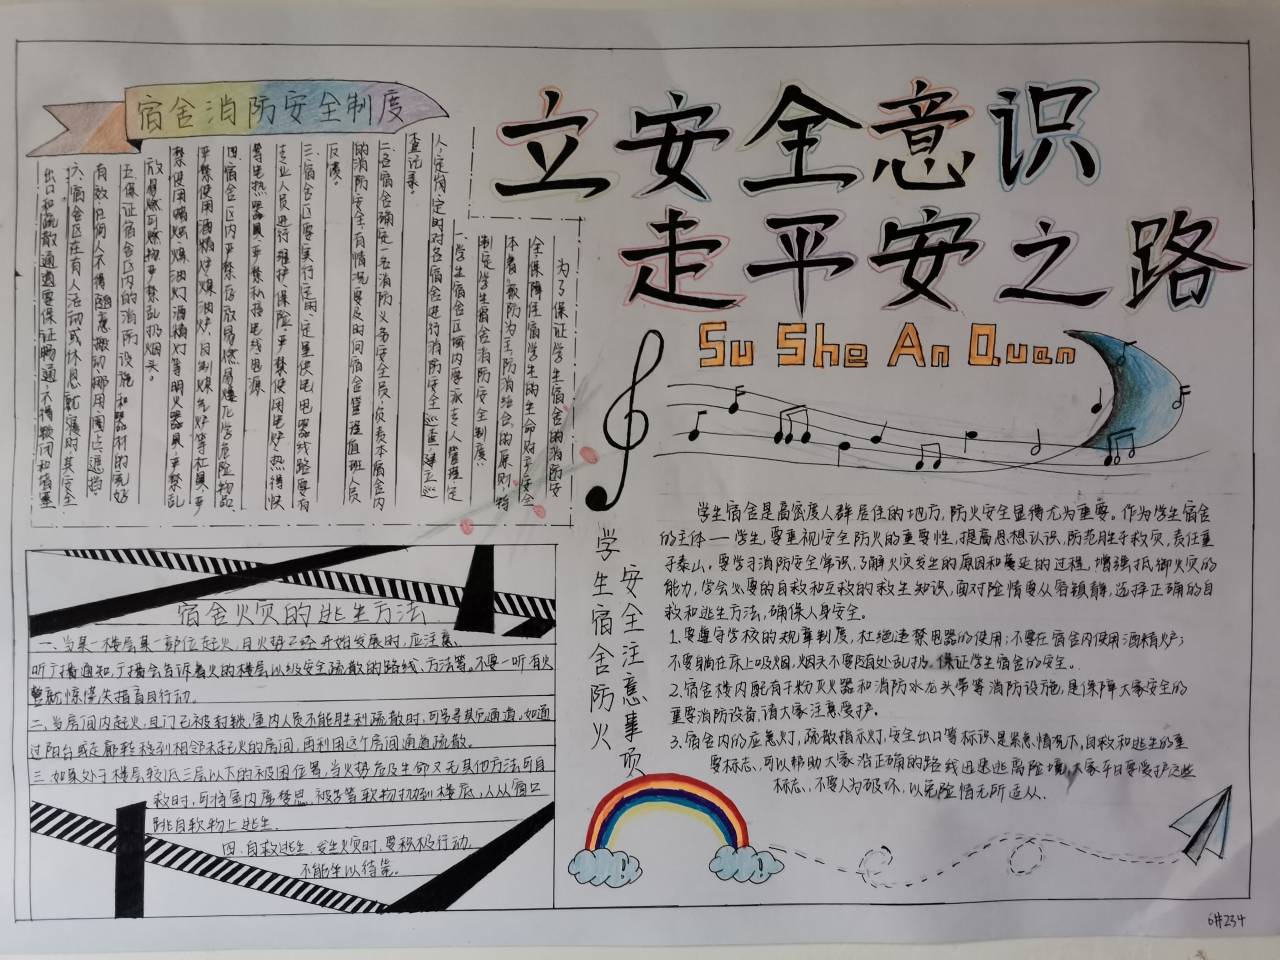 立安全意识
走平安之路
Su She An Quan
宿舍消防安全制度
为了保证学生宿舍的消防安
全,保障住宿学生的生命财产安全
本着预防为主,防消结合的原则,特
制定学生宿舍消防安全制度:
一、学生宿舍区域内要派专人管理定
人,定岗,定时对各宿舍进行消防安全巡查,建立巡
查记录。
二、各宿舍确定一名消防义务安全员,负责本宿舍内
的消防安全,有情况要及时向宿舍管理值班人员
反馈。
三、宿舍区要实行定闸、定量供电,电器线路要有
专业人员进行维护,保险,严禁使用电炉、热得快
等电热器具,严禁私接电线电源
四、宿舍区内严禁存放易燃易爆化学危险物品,
严禁使用酒精炉、煤油炉、自制煤气炉等灶具,严
禁使用蜡烛、煤油灯、酒精灯等明火器具,严禁乱
放易燃可燃物,严禁乱扔烟头。
五、保证宿舍区内的消防设施和器材的完好
有效,任何人不得随意搬动、挪用、圈占、遮挡。
六、宿舍区在有人活动或休息就寝时,其安全
出口和疏散通道要保证畅通,不得锁闭和堵塞
宿舍火灾的逃生方法
一、当某一楼层某一部位起火,且火势已经开始发展时,应注意
听广播通知,广播会告诉着火的楼层以及安全疏散的路线、方法等。不要一听有火
警就惊慌失措盲目行动。
二、当房间内起火,且门已被封锁,室内人员不能顺利疏散时,可另寻其它通道。如通
过阳台或走廊转移到相邻未起火的房间,再利用这个房间通道疏散。
三、如果处于楼层较低三层以下的被困位置,当火势危及生命又无其他方法可自
救时,可将室内席梦思、被子等软物扔到楼底,人从窗口
跳自软物上逃生.
四、自救逃生,发生火灾时,要积极行动,
不能坐以待毙。
学生宿舍防火
安全注意事项
学生宿舍是高密度人群居住的地方,防火安全显得尤为重要。作为学生宿舍
的主体——学生,要重视安全防火的重要性,提高思想认识,防范胜于救灾,责任重
于泰山,要学习消防安全常识,了解火灾发生的原因和蔓延的过程,增强抵御火灾的
能力,学会必要的自救和互救的救生知识,面对险情要从容镇静,选择正确的自
救和逃生方法,确保人身安全。
1.要遵守学校的规章制度,杜绝违禁电器的使用;不要在宿舍内使用酒精炉;
不要躺在床上吸烟,烟头不要随处乱扔。保证学生宿舍的安全。
2.宿舍楼内配有干粉灭火器和消防水龙头带等消防设施,是保障大家安全的
重要消防设备,请大家注意爱护。
3.宿舍内的应急灯,疏散指示灯,安全出口等标识是紧急情况下,自救和逃生的重
要标志,可以帮助大家沿正确的路线迅速逃离险境,大家平日要爱护这些
标志,不要人为破坏,以免险情无所适从.
6#234